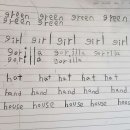 green green green green
green green green green
girl girl girl girl
gorilla gorilla gorilla
gorilla gorilla
hat hat hat hat hat
hand hand hand hand hand
house house house house